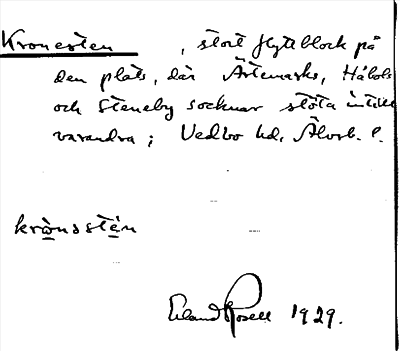 Kronesten , stort flyttblock på
den plats, där Ärtemarks, Håbols
och Steneby socknar stöta intill
varandra; Vedbo hd, Älvsb. l.
krònsstén
Erland Rosell 1929.